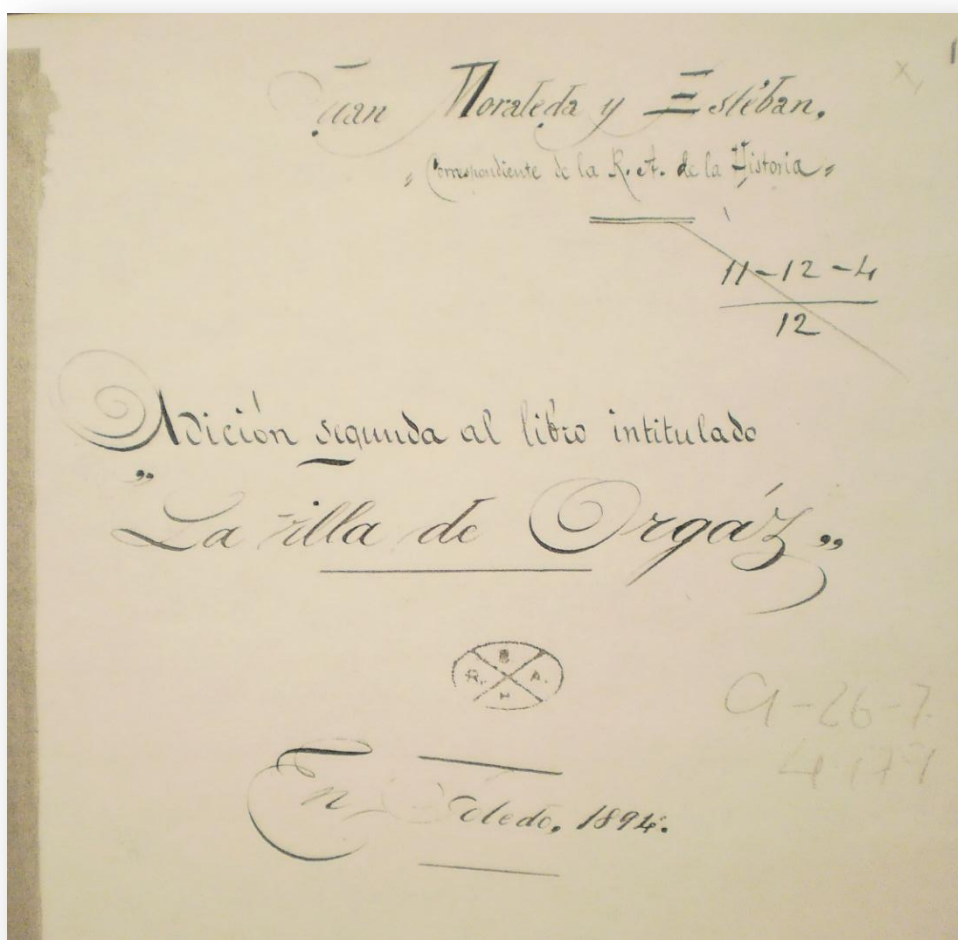 1
Juan Moraleda y Estéban.
"Correspondiente de la R. A. de la Historia"
11-12-4
12
Adición segunda al libro intitulado
"La villa de Orgáz"
B
R. A.
H
En Toledo, 1894.